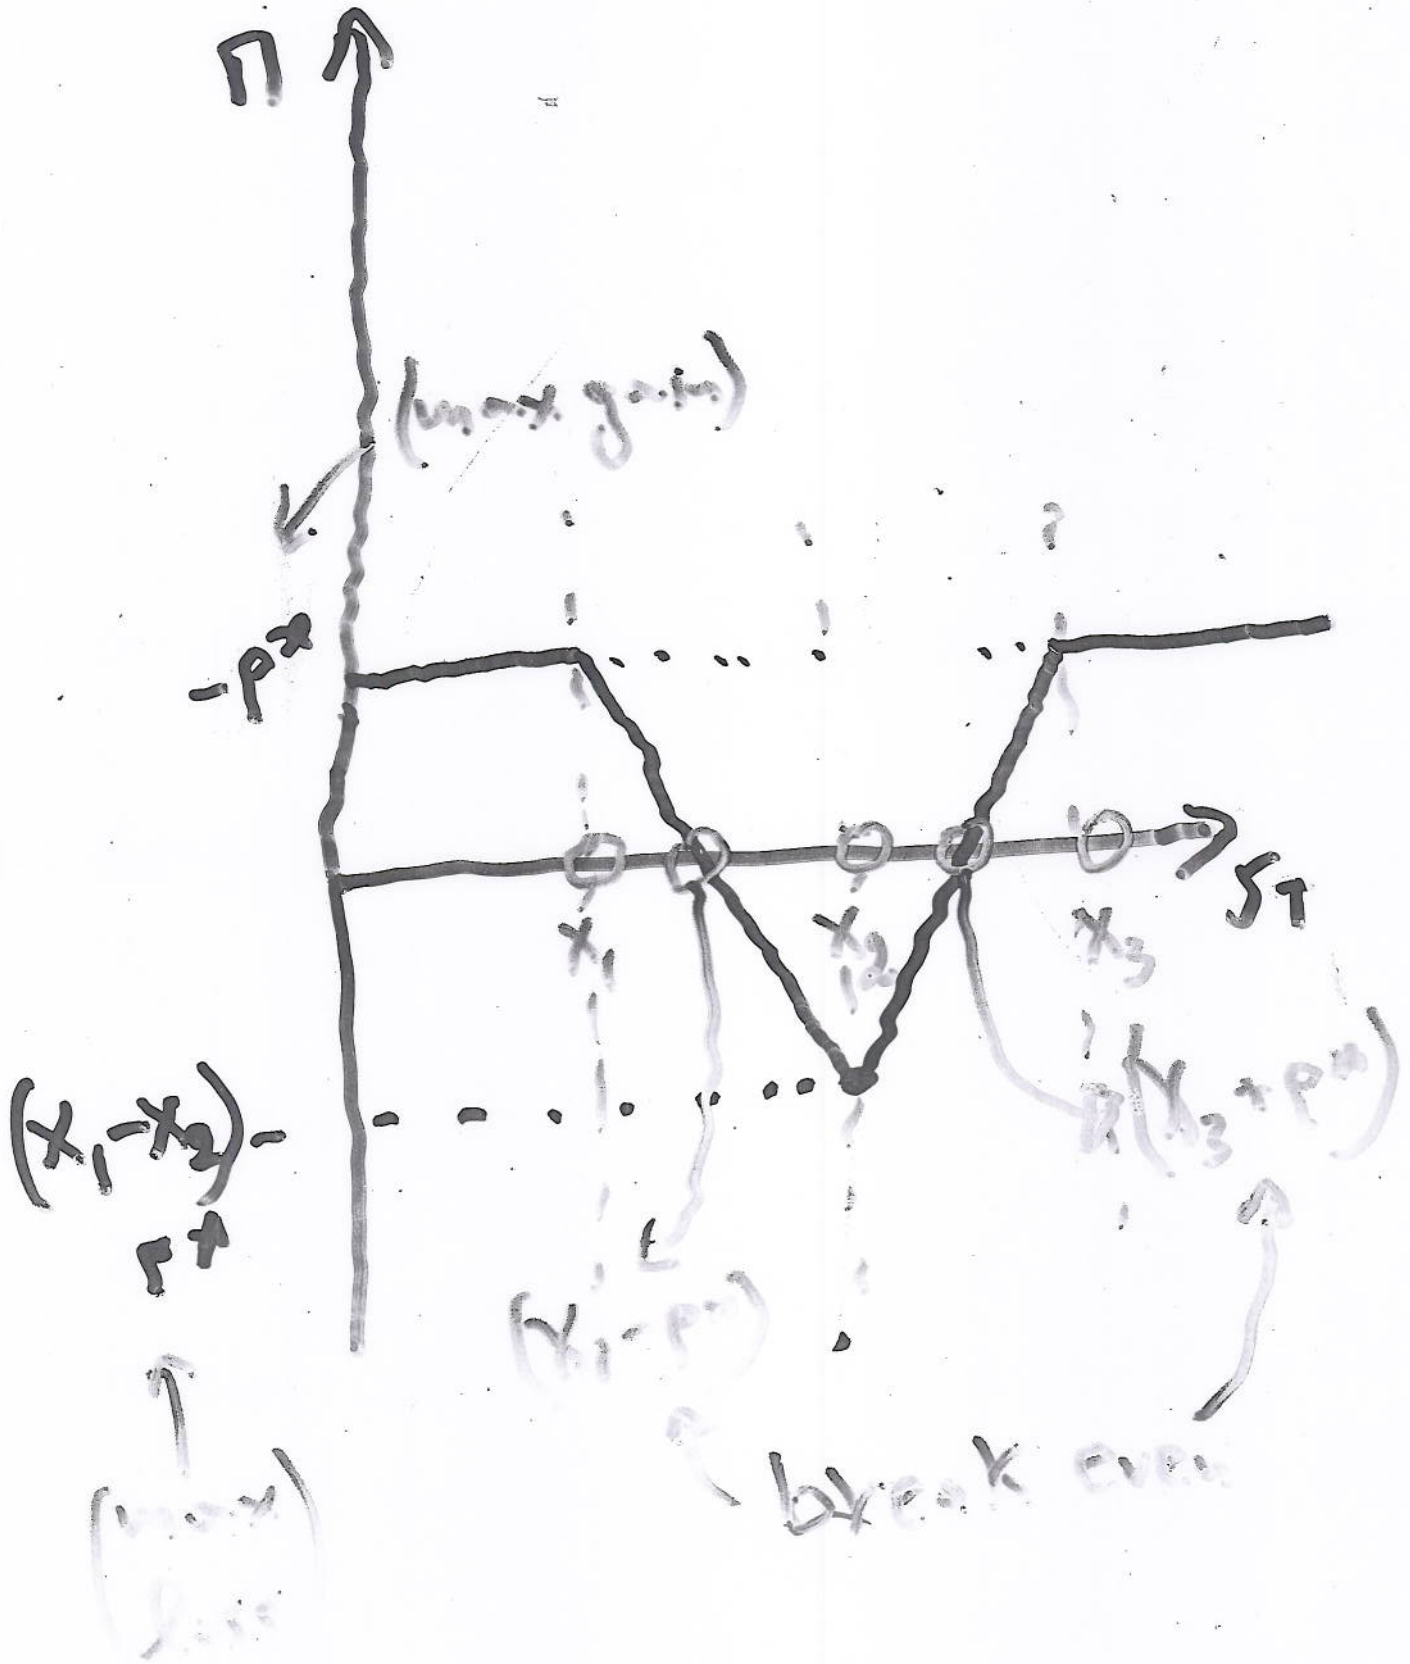 Π
(max gain)
-p*
x₁
x₂
x₃
S_T
(x₁-x₂)-
p*
(x₃+p*)
(x₁-p*)
break even
(max
loss)